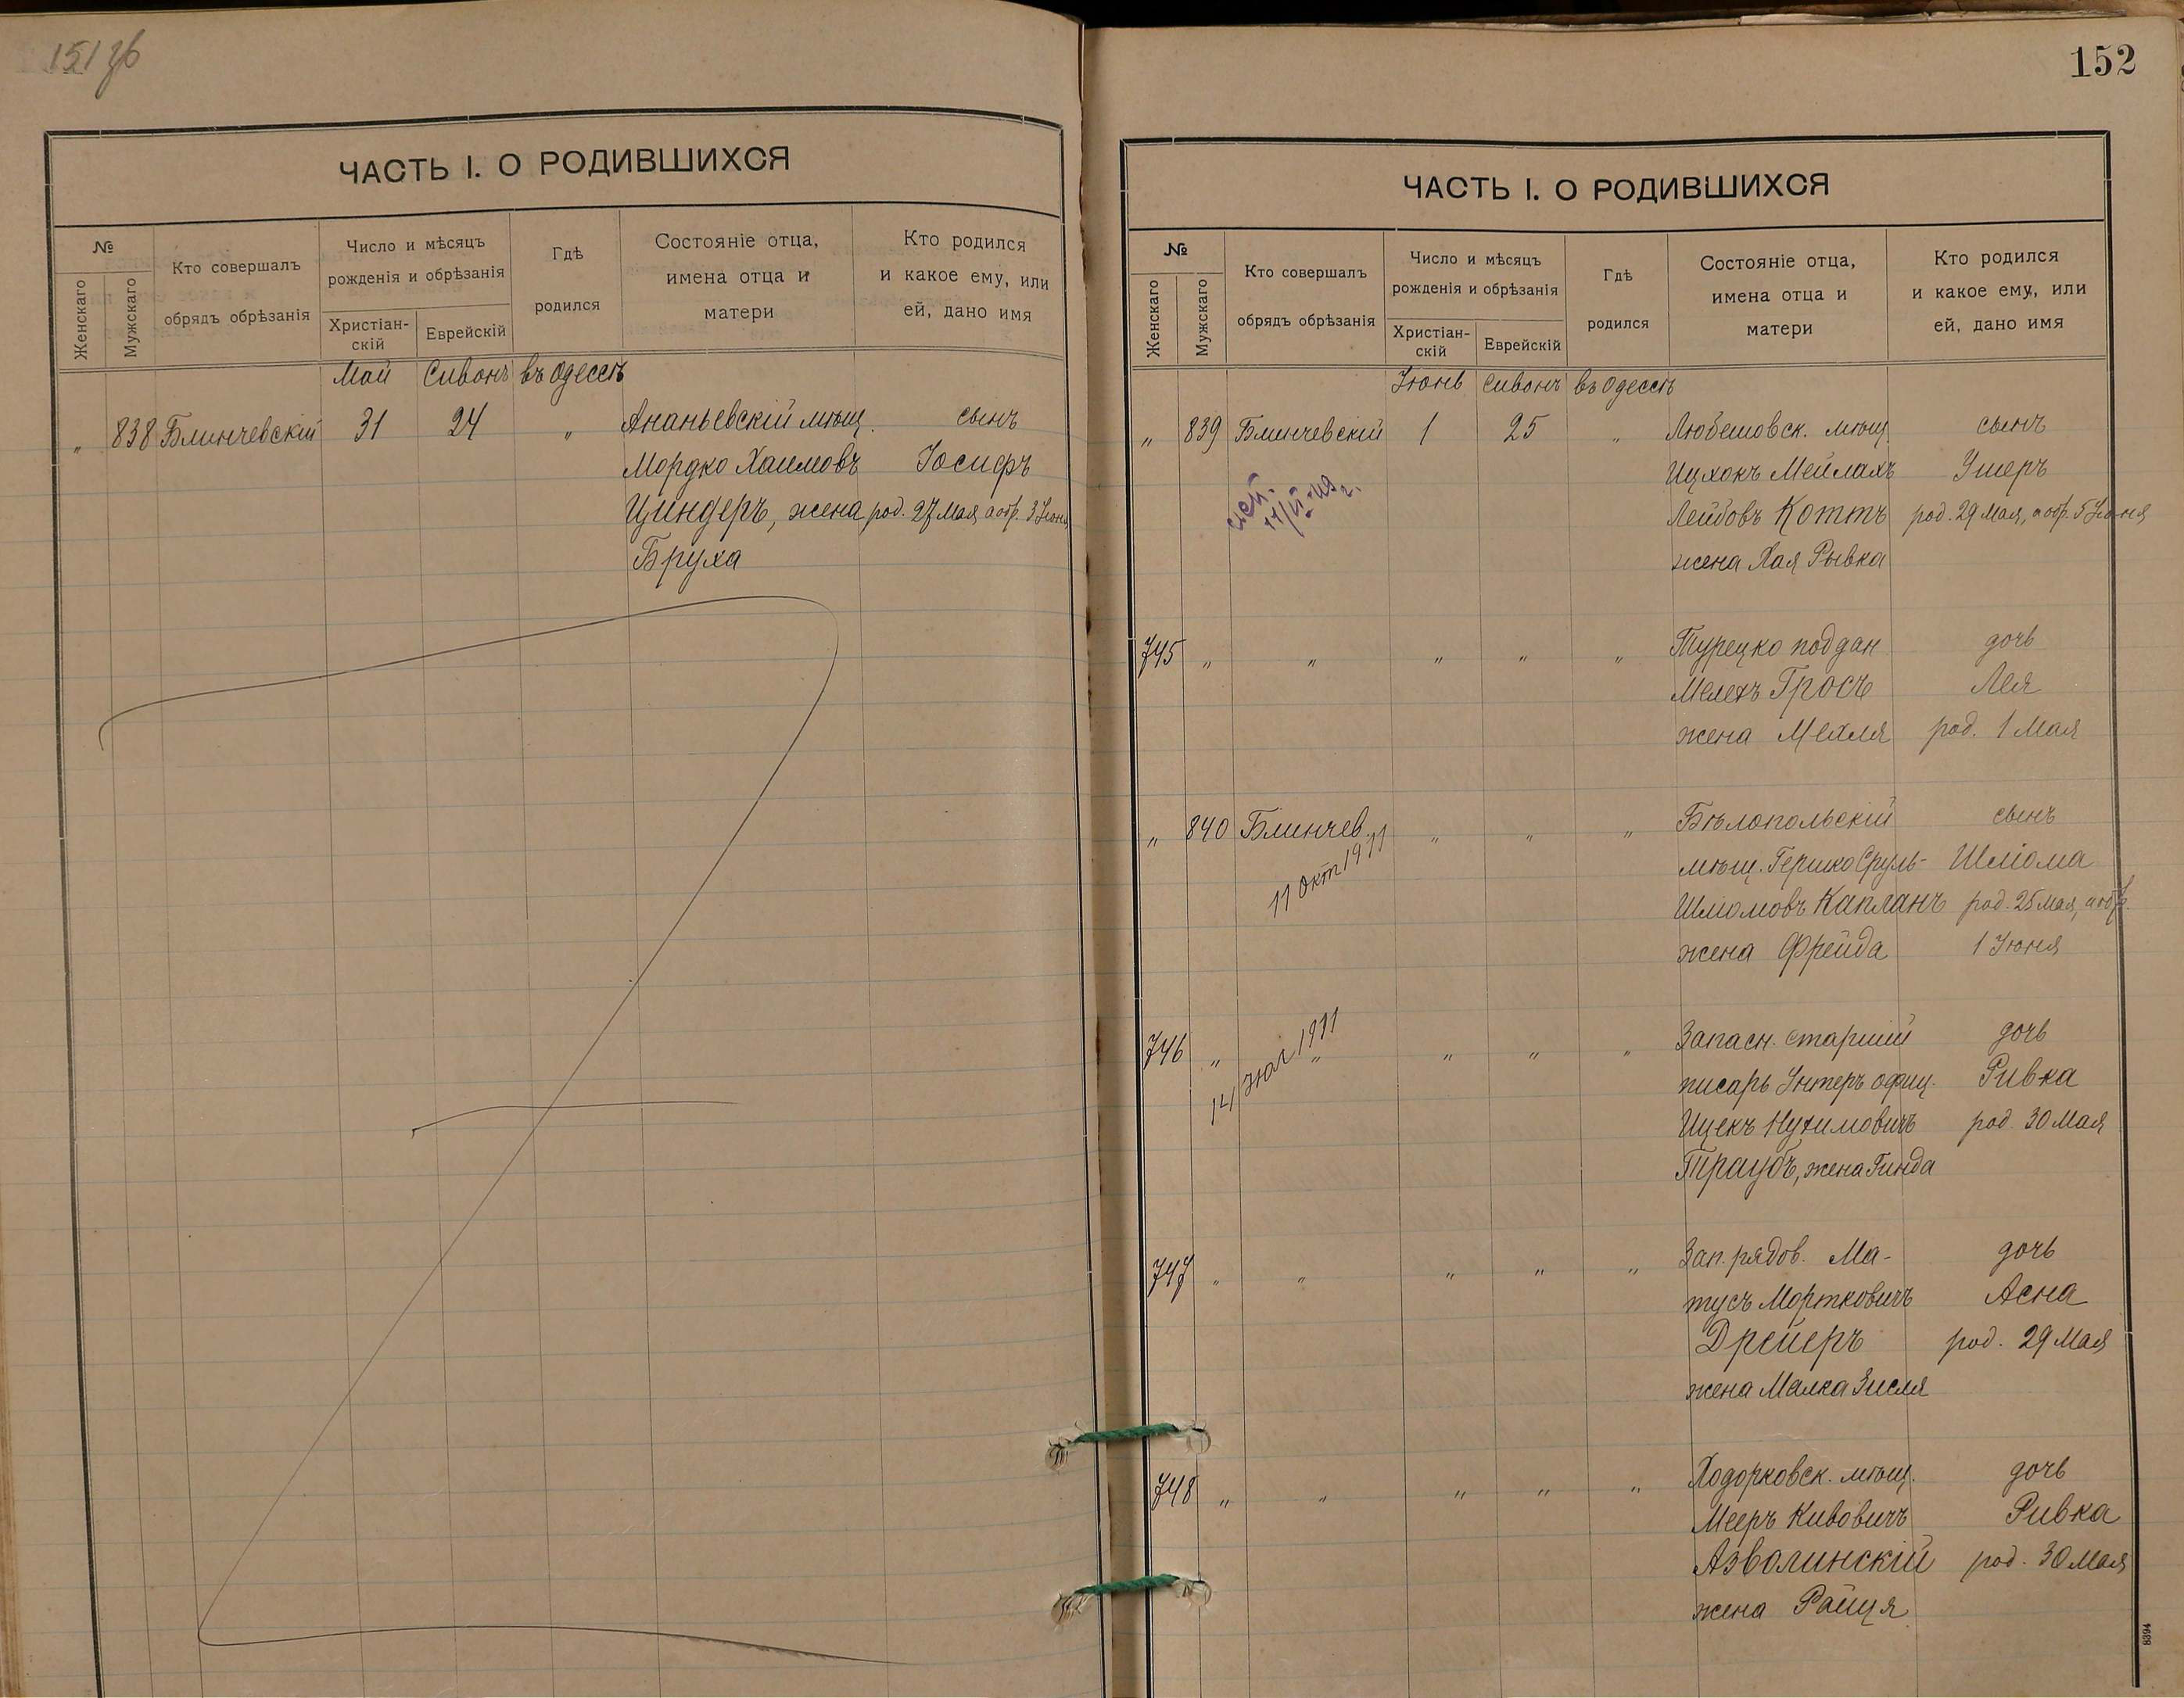 151 зв
ЧАСТЬ I. О РОДИВШИХСЯ
№
Женскаго
Мужскаго
Кто совершалъ
обрядъ обрѣзанія
Число и мѣсяцъ
рожденія и обрѣзанія
Христіан-
скій
Еврейскій
Гдѣ
родился
Состояніе отца,
имена отца и
матери
Кто родился
и какое ему, или
ей, дано имя
Май Сивонъ въ Одессѣ
" 838 Блинчевскій 31 24 " Ананьевскій мѣщ. сынъ
Мордко Хаимовъ Іосифъ
Циндеръ, жена род. 27 Мая, а обр. 3 Іюня
Бруха
152
ЧАСТЬ I. О РОДИВШИХСЯ
№
Женскаго
Мужскаго
Кто совершалъ
обрядъ обрѣзанія
Число и мѣсяцъ
рожденія и обрѣзанія
Христіан-
скій
Еврейскій
Гдѣ
родился
Состояніе отца,
имена отца и
матери
Кто родился
и какое ему, или
ей, дано имя
Іюнь Сивонъ въ Одессѣ
" 839 Блинчевскій 1 25 " Любешовск. мѣщ. сынъ
Ицхокъ Мейлахъ Ушеръ
Лейбовъ Коттъ род. 29 Мая, а обр. 5 Іюня
жена Хая Рывка
745 " " " " " Турецко поддан дочь
Мелехъ Гросъ Лея
жена Мехля род. 1 Мая
" 840 Блинчев. " " " Бѣлопольскій сынъ
11 окт 1911
мѣщ. Гершко Сруль- Шліома
Шліомовъ Капланъ род. 25 Мая, а обр.
жена Фрейда 1 Іюня
746 " " " " " Запасн. старшій дочь
14 Іюл 1911
писарь Унтеръ офиц. Ривка
Ицекъ Нухимовичъ род. 30 Мая
Траубъ, жена Гинда
747 " " " " " Зап. рядов. Ма- дочь
тусъ Мортковичъ Асна
Дрейеръ род. 29 Мая
жена Малка Зисля
748 " " " " " Ходорковск. мѣщ. дочь
Мееръ Кивовичъ Ривка
Азволинскій род. 30 Мая
жена Райця
8394